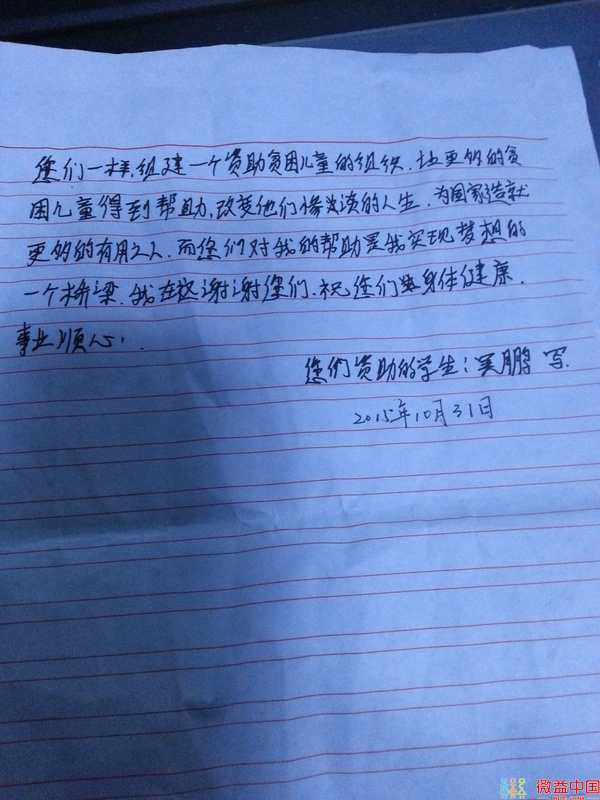 您们一样,组建一个资助贫困儿童的组织.让更多的贫
困儿童得到帮助,改变他们的人生.为国家造就
更多的有用之人.而您们对我的帮助是我实现梦想的
一个桥梁.我在这谢谢您们.祝您们身体健康.
事业顺心!
您们资助的学生:吴鹏 写.
2015年10月31日
微益中国